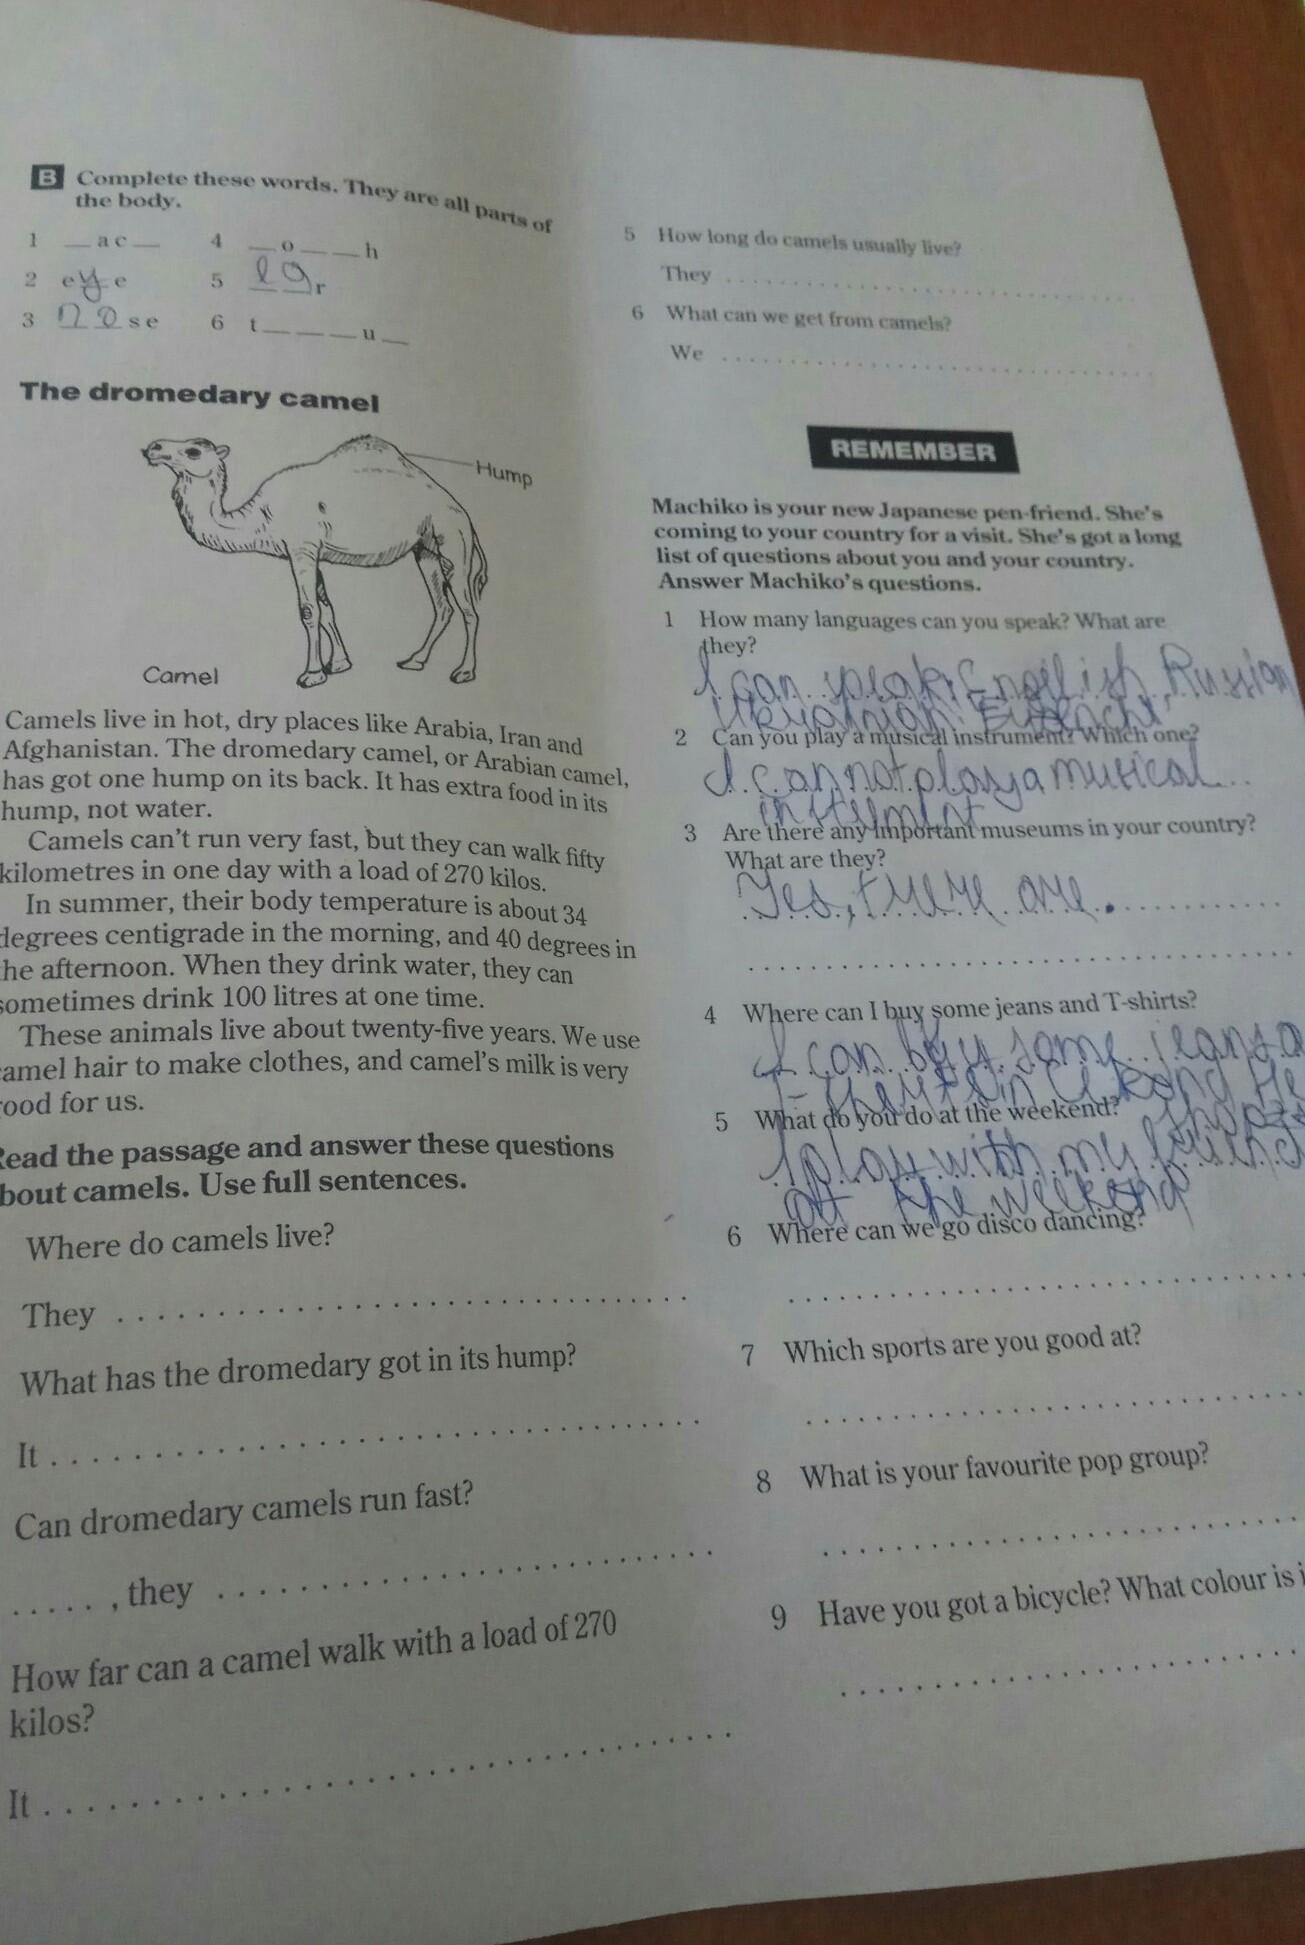 B Complete these words. They are all parts of
the body.
1 _ac_ 4 _o__h
2 eye 5 ear
3 nose 6 t___u_
The dromedary camel
Hump
Camel
Camels live in hot, dry places like Arabia, Iran and
Afghanistan. The dromedary camel, or Arabian camel,
has got one hump on its back. It has extra food in its
hump, not water.
Camels can't run very fast, but they can walk fifty
kilometres in one day with a load of 270 kilos.
In summer, their body temperature is about 34
degrees centigrade in the morning, and 40 degrees in
he afternoon. When they drink water, they can
sometimes drink 100 litres at one time.
These animals live about twenty-five years. We use
amel hair to make clothes, and camel's milk is very
ood for us.
Read the passage and answer these questions
bout camels. Use full sentences.
Where do camels live?
They
What has the dromedary got in its hump?
It
Can dromedary camels run fast?
....., they
How far can a camel walk with a load of 270
kilos?
It
5 How long do camels usually live?
They
6 What can we get from camels?
We
REMEMBER
Machiko is your new Japanese pen-friend. She's
coming to your country for a visit. She's got a long
list of questions about you and your country.
Answer Machiko's questions.
1 How many languages can you speak? What are
they?
I can speak: English, Russian
2 Can you play a musical instrument? Which one?
I can not play a musical
3 Are there any important museums in your country?
What are they?
Yes, there are.
4 Where can I buy some jeans and T-shirts?
I can buy some jeans a
5 What do you do at the weekend?
I play with my
at the weekend
6 Where can we go disco dancing?
7 Which sports are you good at?
8 What is your favourite pop group?
9 Have you got a bicycle? What colour is i